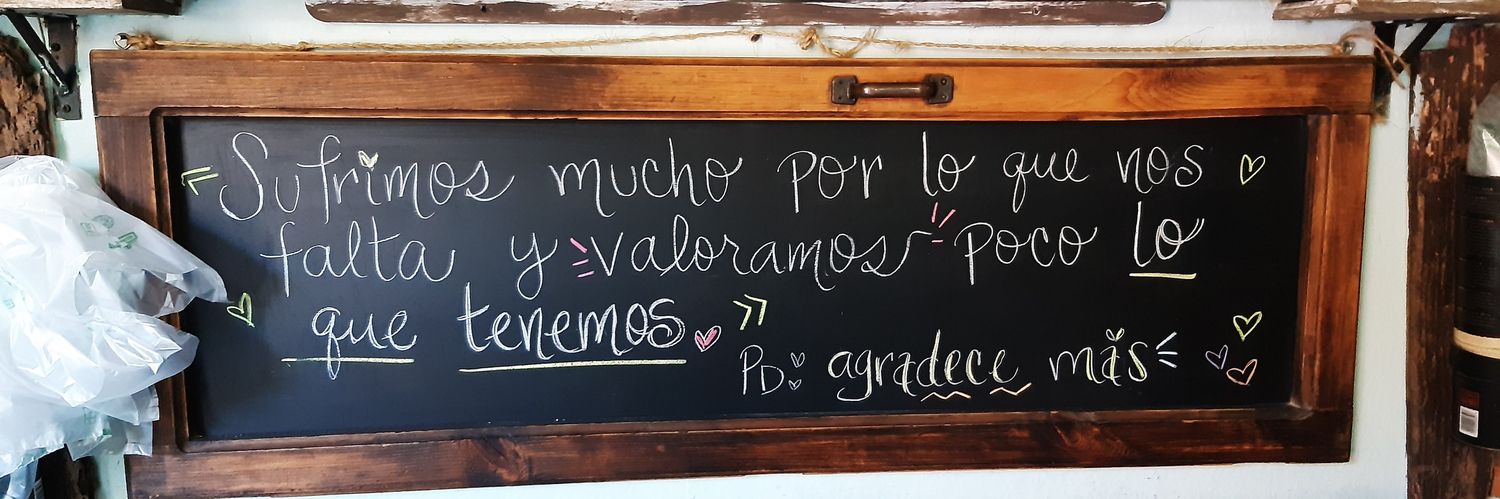 «Sufrimos mucho por lo que nos
falta y valoramos poco lo
que tenemos»
PD: agradece más